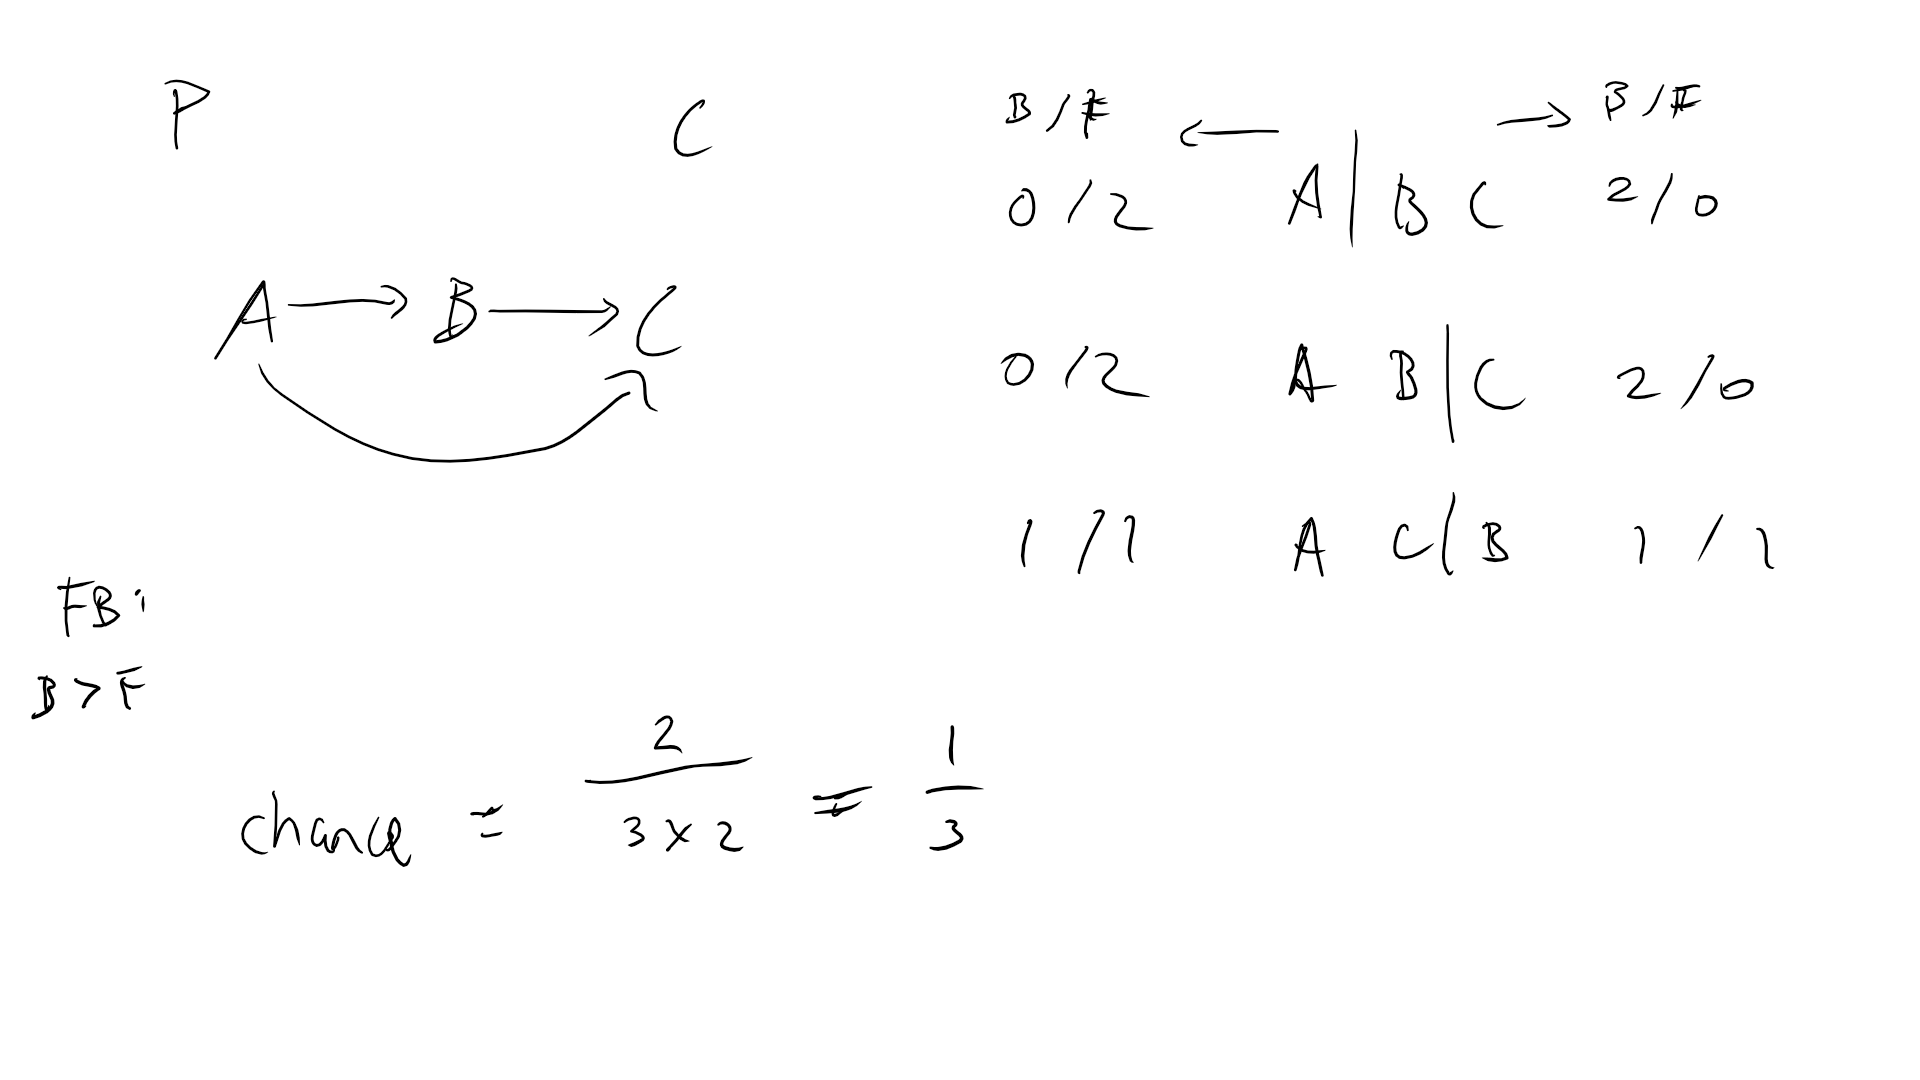 P C
B/F ← → B/F
0/2 A|BC 2/0
A → B → C
0/2 AB|C 2/0
1/1 AC|B 1/1
FB:
B>F
chance = 2/(3×2) = 1/3